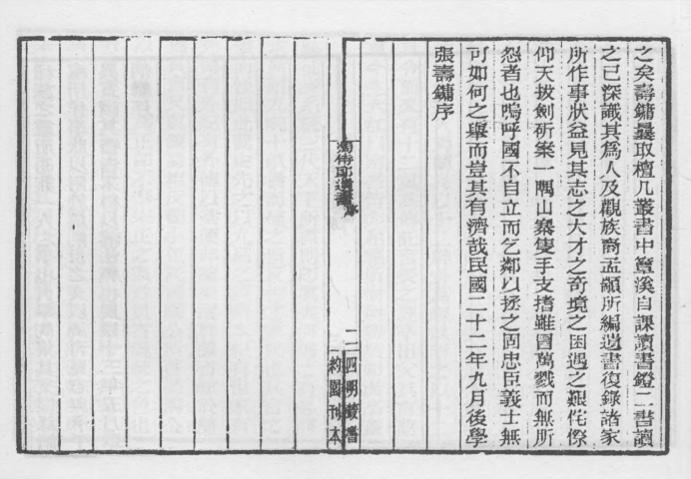 之矣壽鏞曩取檀几叢書中簟溪自課讀書鐙二書讀
之已深識其爲人及觀族裔孟顒所編遺書復錄諸家
所作事狀益見其志之大才之奇境之困遇之艱侘傺
仰天拔劍斫案一隅山寨隻手支撐雖囙萬戮而無所
怨者也嗚呼國不自立而乞鄰以拯之固忠臣義士無
可如何之舉而豈其有濟哉民國二十二年九月後學
張壽鏞序
馮侍郎遺書 序
二
四明叢書
約園刊本